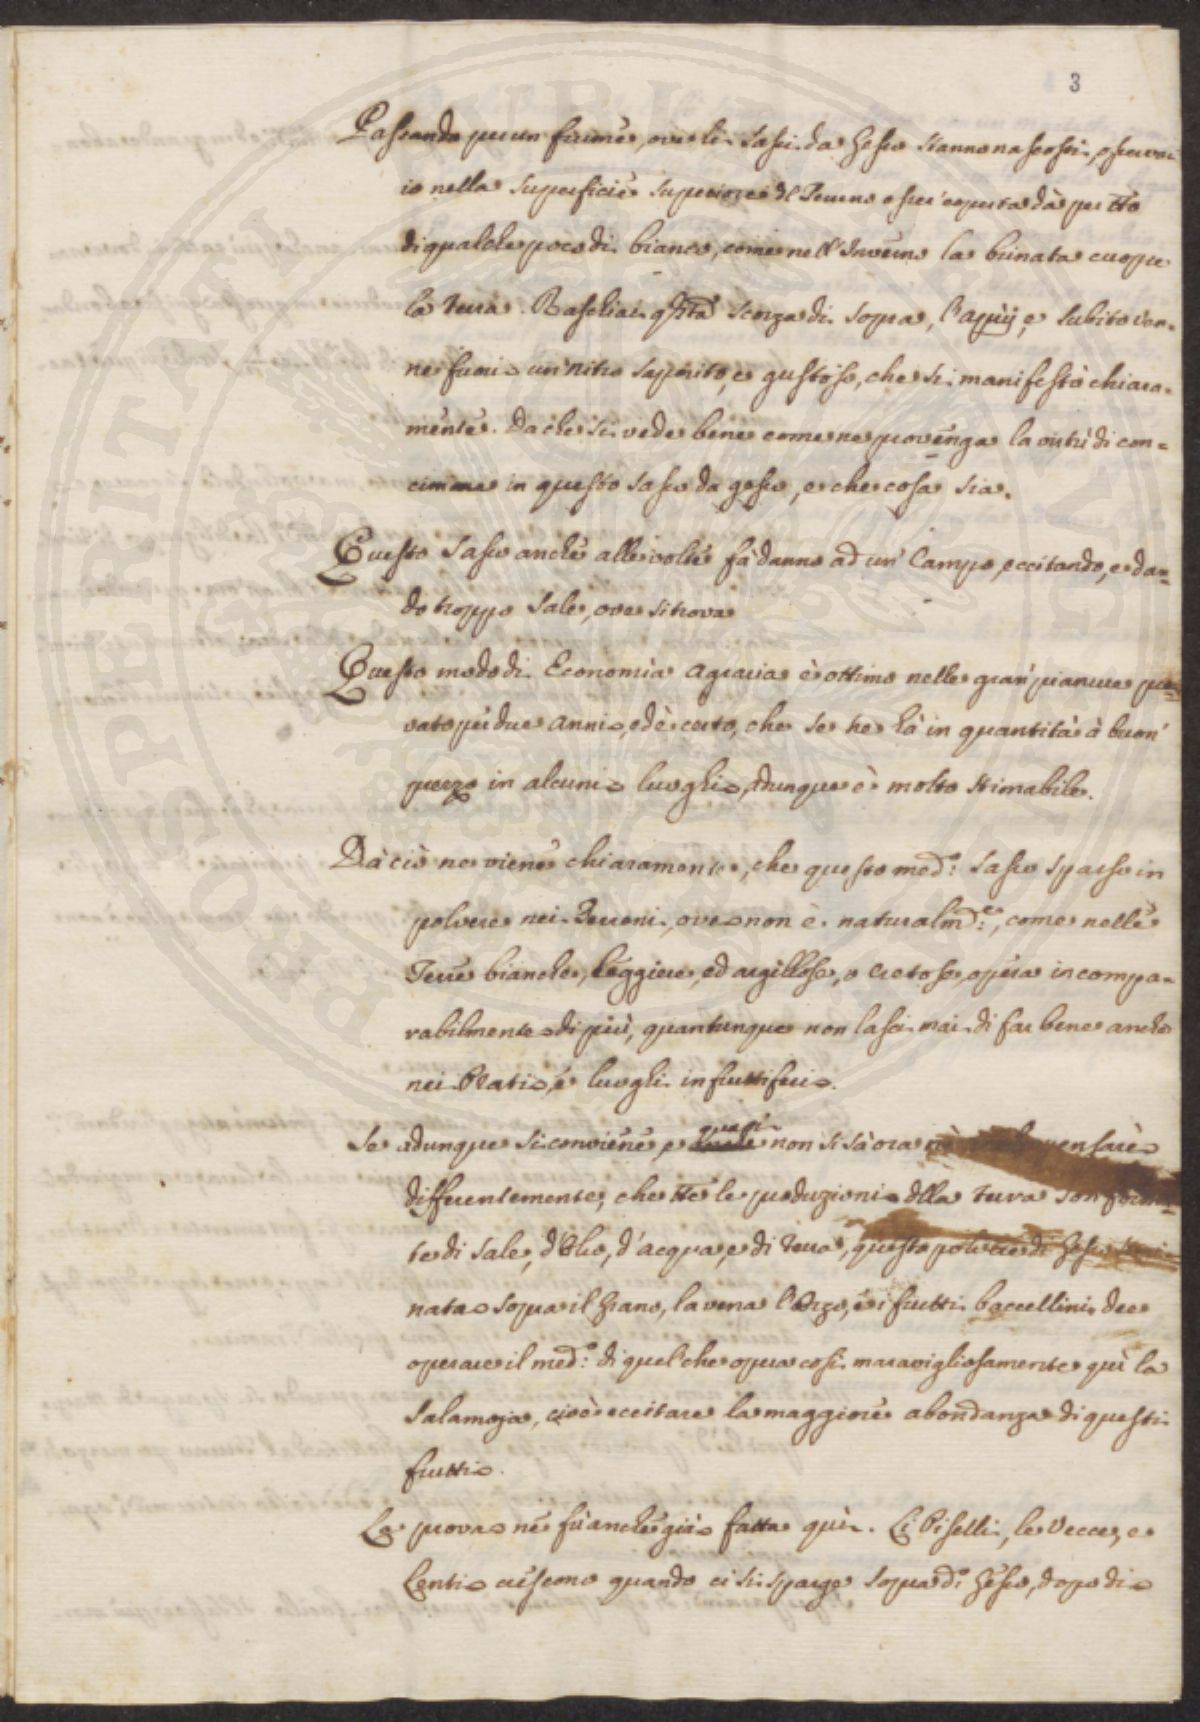 3
Passando per un fiume, ove li Sassi da Gesso stanno nascosti, osservai
io nella superficie superiore del Terreno esser coperta dà per tto
di qualche poco di bianco, come nell'Inverno la brinata cuopre
la terra. Raschiai qsta scorza di sopra, l'apprij, e subito ven-
ne fuori un nitro saporito, e gustoso, che si manifestò chiara-
mente. Da che si vede bene come ne provenga la virtù di con-
cimare in questo sasso da gesso, e che cosa sia.
Questo Sasso anche alle volte fà danno ad un' Campo, eccitando, e dan-
do troppo Sale, ove si trova
Questo modo di Economia agraria è ottimo nelle gran' pianure pro-
vato per due anni, ed è certo, che se ne hà in quantità à buon'
prezzo in alcuni luoghi, adunque è molto stimabile.
Dà ciò ne viene chiaramente, che questo medo: Sasso sparso in
polvere nei Terreni, ove non è naturalmte:, come nelle
Terre bianche, leggiere, ed argillose, o cretose, opera incompa-
rabilmente di più, quantunque non lasci mai di far bene anche
nei Prati, e luoghi infruttiferi.
Se adunque si conviene, e quasi non si sà ora nè pensare
differentemente, che tte le produzioni dlla terra son forma-
te di Sale, d'Olio, d'acqua, e di Terra, questa polvere di Gesso
nata sopra il Grano, la vena l'Orzo, e i frutti baccellini dee
operare il medo: di quel che opra così maravigliosamente quì la
Salamoja, cioè eccitare la maggiore abondanza di questi
frutti.
La prova ne fù anche già fatta quì. Li Piselli, le Vecce, e
Lenti crescono quando ci si sparge sopra do Gesso, dopo di